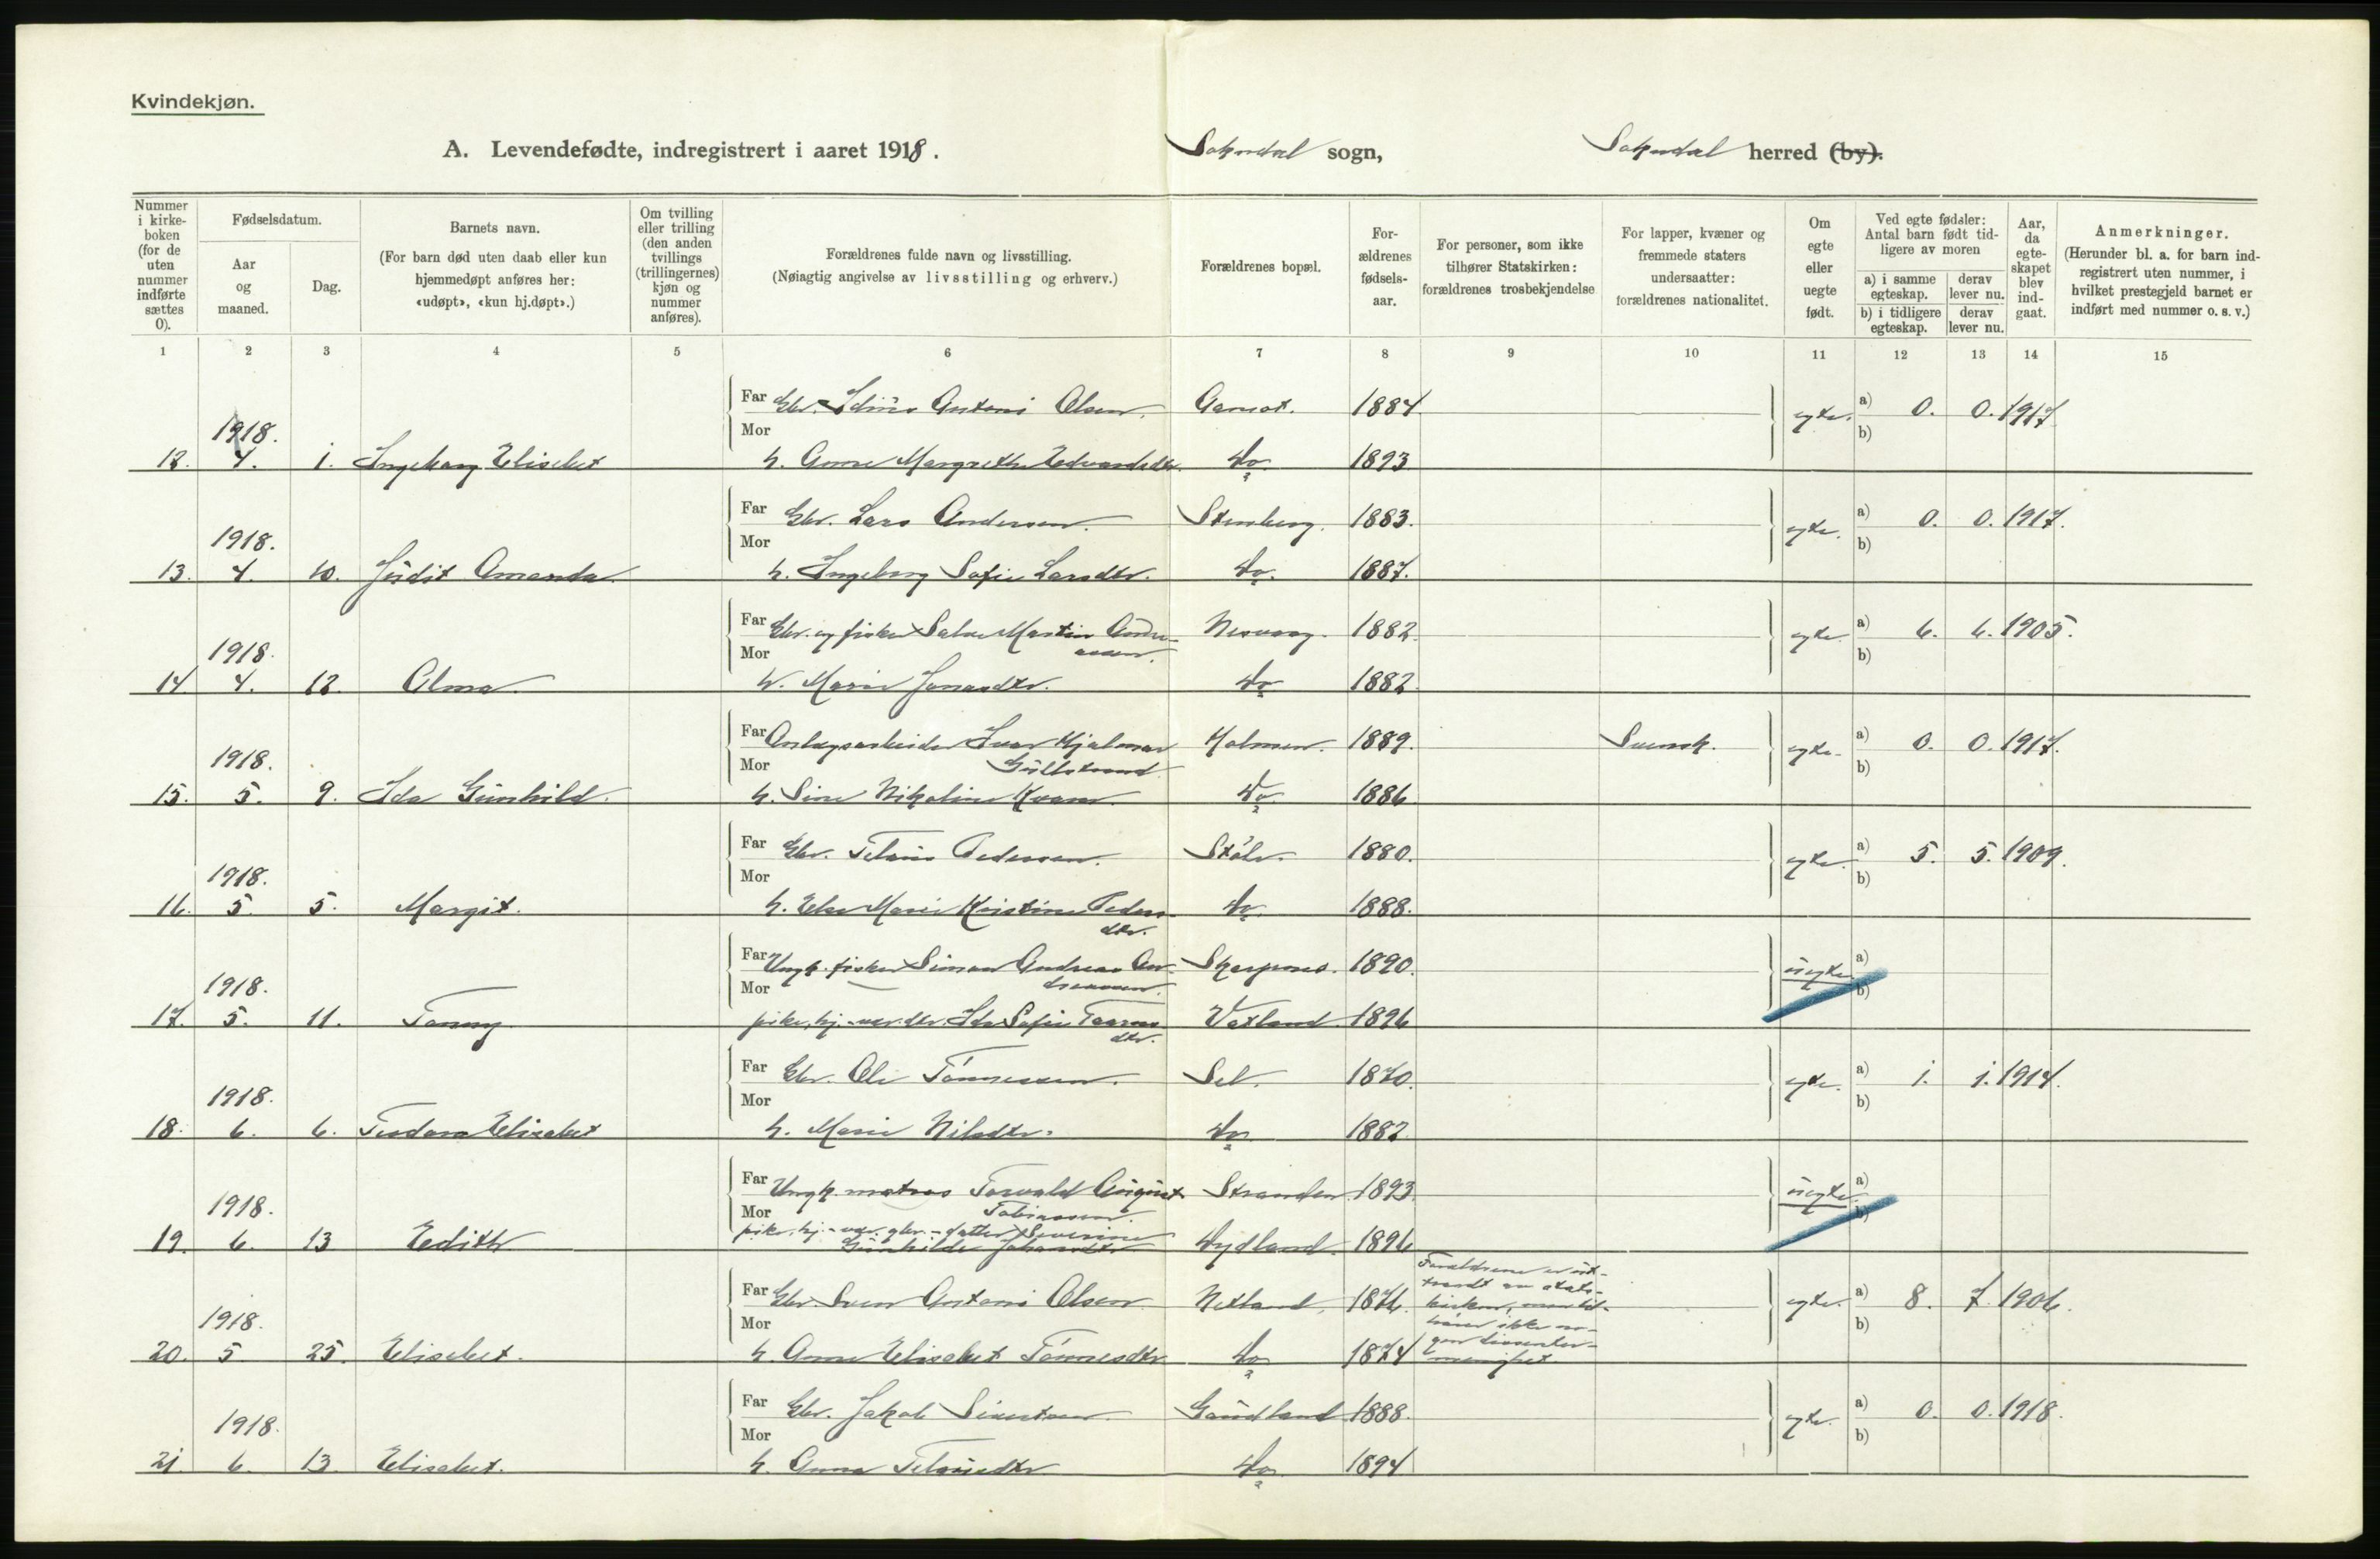 Kvindekjøn.
A. Levendefødte, indregistrert i aaret 1918. Sokndal sogn, Sokndal herred (by).
Nummer i kirkeboken (for de uten nummer indførte sættes 0).
Fødselsdatum.
Aar og maaned.
Dag.
Barnets navn.
(For barn død uten daab eller kun hjemmedøpt anføres her: «udøpt», «kun hj.døpt».)
Om tvilling eller trilling (den anden tvillings (trillingernes) kjøn og nummer anføres).
Forældrenes fulde navn og livsstilling.
(Nøiagtig angivelse av livsstilling og erhverv.)
Forældrenes bopæl.
Forældrenes fødselsaar.
For personer, som ikke tilhører Statskirken: forældrenes trosbekjendelse
For lapper, kvæner og fremmede staters undersaatter: forældrenes nationalitet.
Om egte eller uegte født.
Ved egte fødsler: Antal barn født tidligere av moren
a) i samme egteskap. derav lever nu.
b) i tidligere egteskap. derav lever nu.
Aar, da egteskapet blev indgaat.
Anmerkninger.
(Herunder bl. a. for barn indregistrert uten nummer, i hvilket prestegjeld barnet er indført med nummer o. s. v.)
1 2 3 4 5 6 7 8 9 10 11 12 13 14 15
Far Gbr. Antoni Olsen. 1884 egte. a) 0. 0. 1917
1918. Mor b)
12. 4. 1. Ingeborg Elisebet h. Anne Margrethe Edvardsdtr. do 1893
Far Gbr. Lars Andersen. Stenberg. 1883. egte. a) 0. 0. 1917.
1918. Mor b)
13. 4. 10. Judit Amanda. h. Ingeborg Sofie Larsdtr. do. 1887.
Far Gbr. og fisker Salve Martin Andreassen. Nesvaag. 1882. egte. a) 6. 6. 1905.
1918. Mor b)
14 4. 12. Alma. h. Marie Jonasdtr. do 1882.
Far Anlægsarbeider Ivar Hjalmar Gullstrand Holmen. 1889. Svensk. egte. a) 0. 0. 1917.
1918. Mor b)
15. 5. 9. Ida Gunhild. h. Sine Nikoline Kvam. do 1886
Far Gbr. Pedersen. Støle. 1880. egte. a) 5. 5. 1909.
1918. Mor b)
16. 5. 5. Margit. h. Else Marie Kristine Pedersdtr. do 1888.
Far Ungk. fisker Simon Andreas Andreassen. Skarpnes. 1890. uegte a)
1918. Mor b)
17. 5. 11. Tonny pike, hj.-vær. dtr. Ida Sofie dtr. Vatland 1896
Far Gbr. Ole Tønnessen. Sel. 1870. egte. a) 1. 1. 1914.
1918. Mor b)
18. 6. 6. Teodora Elisabet h. Marie Nilsdtr. do 1882.
Far Ungk. matros Torvald August Tobiassen. Stranden 1893. uegte. a)
1918. Mor b)
19. 6. 13 Edith pike, hj.-vær. gbr.-datter Severine Gunhilde Johansdtr. Dydland. 1896
Far Gbr. Sven Antoni Olsen Netland. 1876. Forældrene er uttraadt av statskirken, men tilhører ikke nogen dissentermenighet. egte. a) 8. 7. 1906.
1918. Mor b)
20. 5 25. Elisebet. h. Anne Elisabet Tønnesdtr. do 1874
Far Gbr. Jakob Sivertsen. Gaudland 1888. egte. a) 0. 0. 1918.
1918. Mor b)
21. 6. 13. Elisebet. h. Anna do. 1894